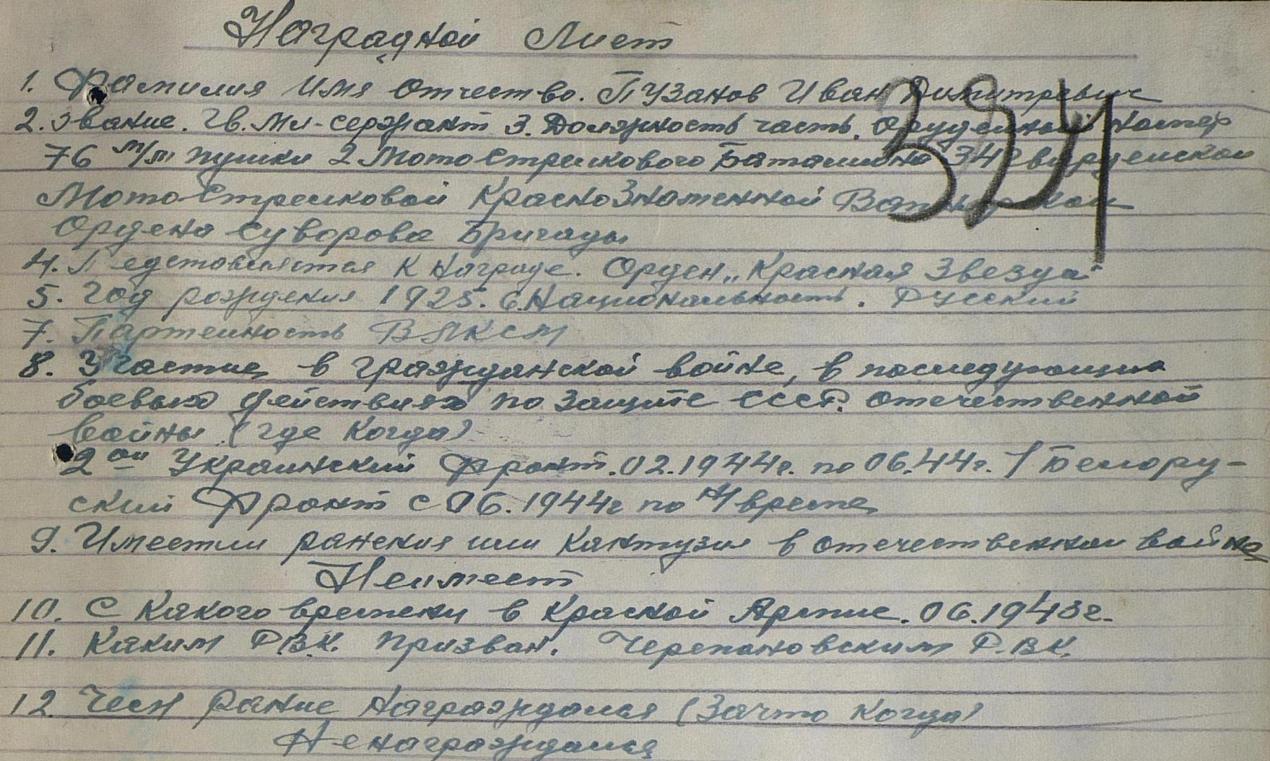 Наградной Лист
1. Фамилия Имя Отчество. Пузанов Иван Димитревич
2. Звание. Гв. Мл-сержант 3. Должность часть. Орудейный номер
76 м/м пушки 2 Мото Стрелкового Баталиона 34 гвардейской
Мото Стрелковой Краснознаменной Вапнярской
Ордена Суворова Бригады
4. Педставляется к награде. Орден „Красная Звезда"
5. Год рождения 1925. 6. Национальность. Русский
7. Партейность ВЛКСМ
8. Участие в гражданской войне, в последующих
боевых действиях по защите СССР. отечественной
войны (где когда)
2ой Украинский фронт. 02.1944г. по 06.44г. 1 Белору-
ский Фронт с 06.1944г по н/время
9. Имеетли ранения или кантузии в отечественной войне
Неимеет
10. С какого времени в Красной Армие. 06.1943г.
11. Каким Р.В.К. призван. Черепановским Р.В.К.
12. Чем ранее награждался (зачто когда)
Ненаграждался
334